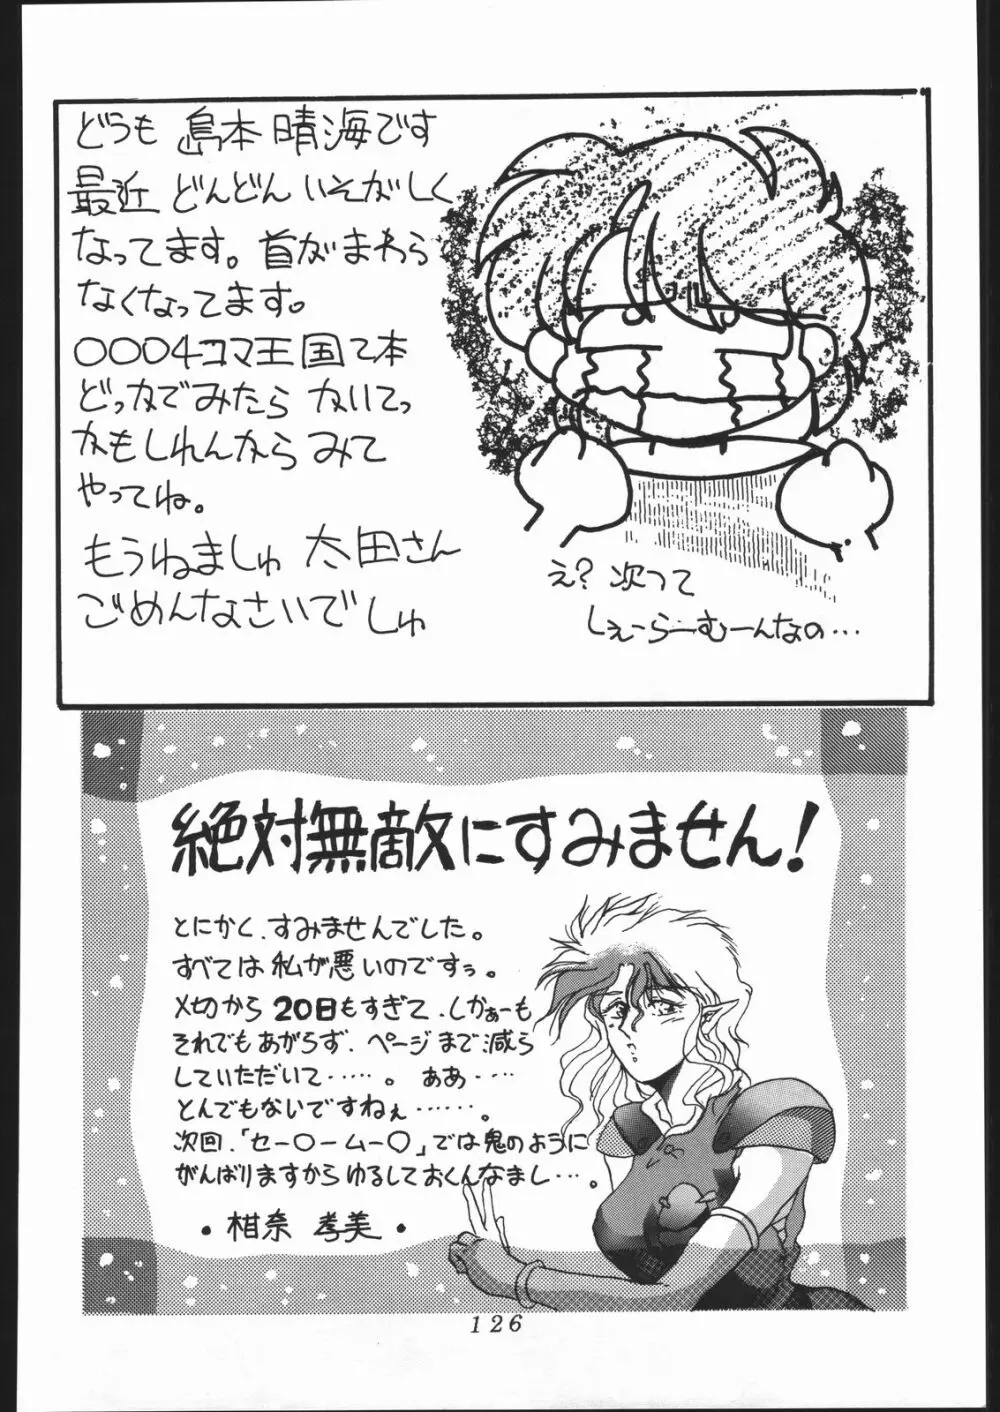 どうも 島本 晴海です
最近 どんどん いそがしく
なってます。首がまわら
なくなってます。
〇〇〇4コマ王国て本
どっかでみたら かいてっ
かもしれんから みて
やってね。
もうねましゅ 太田さん
ごめんなさいでしゅ
え?次って
しぇーらーむーんなの…
絶対無敵にすみません!
とにかく、すみませんでした。
すべては私が悪いのですぅ。
〆切から20日もすぎて、しかぁーも
それでもあがらず、ページまで減ら
していただいて‥‥‥。ぁぁ‥‥
とんでもないですねぇ‥‥‥。
次回、「セー〇ームー〇」では鬼のように
がんばりますからゆるしておくんなまし‥‥。
・柑奈 孝美・
126